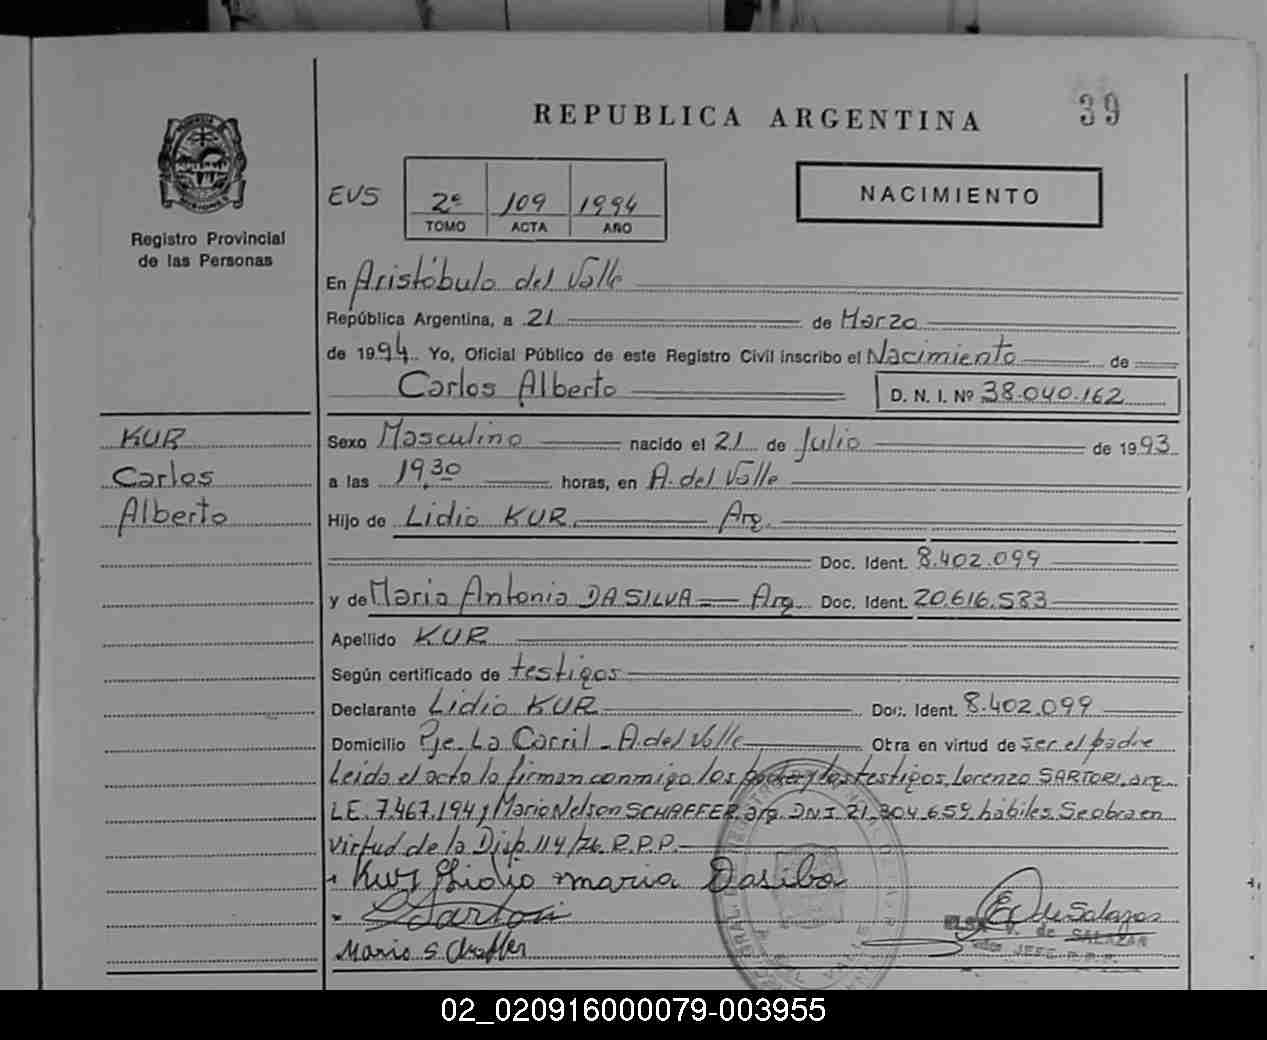 39
REPUBLICA ARGENTINA
NACIMIENTO
EVS
2º 109 1994
TOMO ACTA AÑO
Registro Provincial
de las Personas
En Aristóbulo del Valle
República Argentina, a 21 de Marzo
de 1994. Yo, Oficial Público de este Registro Civil inscribo el Nacimiento de
Carlos Alberto D. N. I. Nº 38.040.162
KUR
Carlos
Alberto
Sexo Masculino nacido el 21 de Julio de 1993
a las 19,30 horas, en A. del Valle
Hijo de Lidio KUR Arg.
Doc. Ident. 8.402.099
y de Maria Antonia DA SILVA Arg. Doc. Ident. 20.616.583
Apellido KUR
Según certificado de testigos
Declarante Lidio KUR Doc. Ident. 8.402.099
Domicilio Pje. La Carril - A. del Valle Obra en virtud de ser el padre
Leida el acta la firman conmigo los padres y los testigos, Lorenzo SARTORI, arg.
L.E. 7.467.194 y Mario Nelson SCHAFFER, arg. DNI 21.304.659 hábiles. Se obra en
virtud de la Disp. 114/76 R.P.P.
Kur Lidio maria Dasilba
L Sartori
Mario Schaffer
E V de Salazar
ELSA V. de SALAZAR
JEFE R.P.P.
02_020916000079-003955